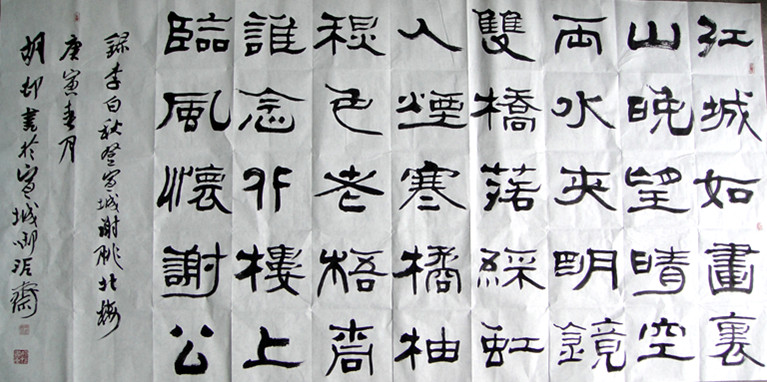 江城如畫裏
山晚望晴空
兩水夾明鏡
雙橋落綵虹
人煙寒橘柚
秋色老梧桐
誰念北樓上
臨風懷謝公
錄李白秋登宣城謝朓北樓
庚寅春月
胡書於宣城齋